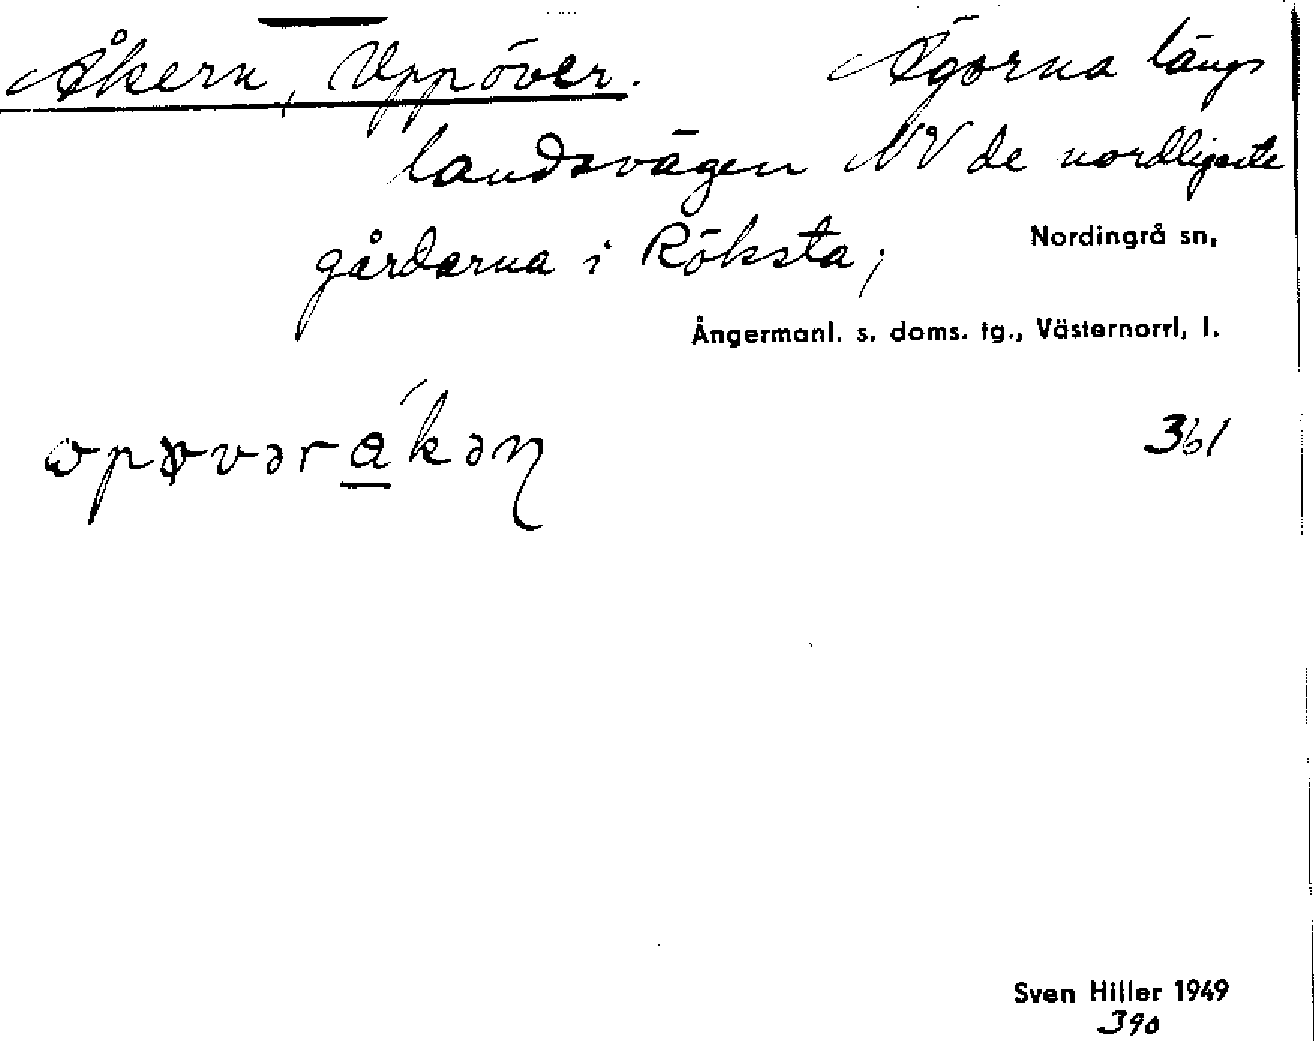 Åkern, Uppöver. Ägorna längs
landsvägen NV de nordligaste
gårdarna i Röksta;
Nordingrå sn,
Ångermanl. s. doms. tg., Västernorrl, l.
361
Sven Hiller 1949
390